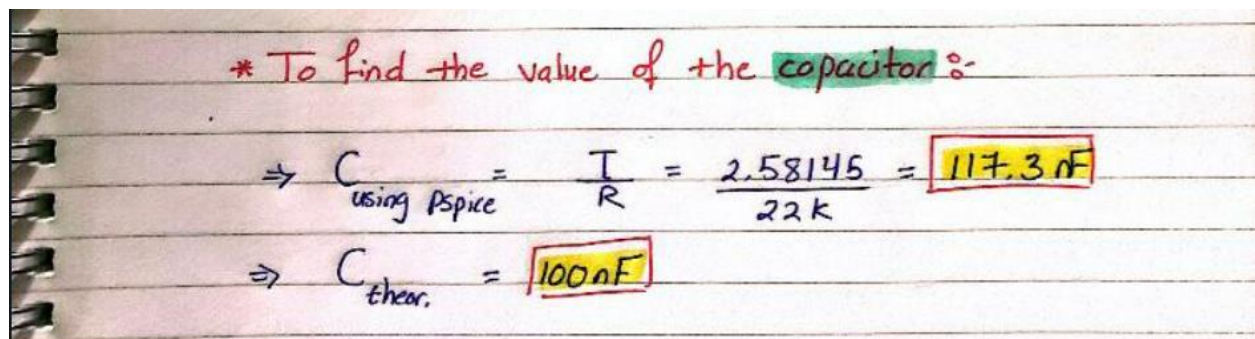 * To find the value of the copacitor :-
⇒ C using Pspice = I/R = 2.58145/22K = 117.3 nF
⇒ C thear. = 100nF